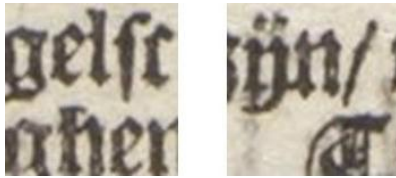 gelſc
ghen
zijn/
T